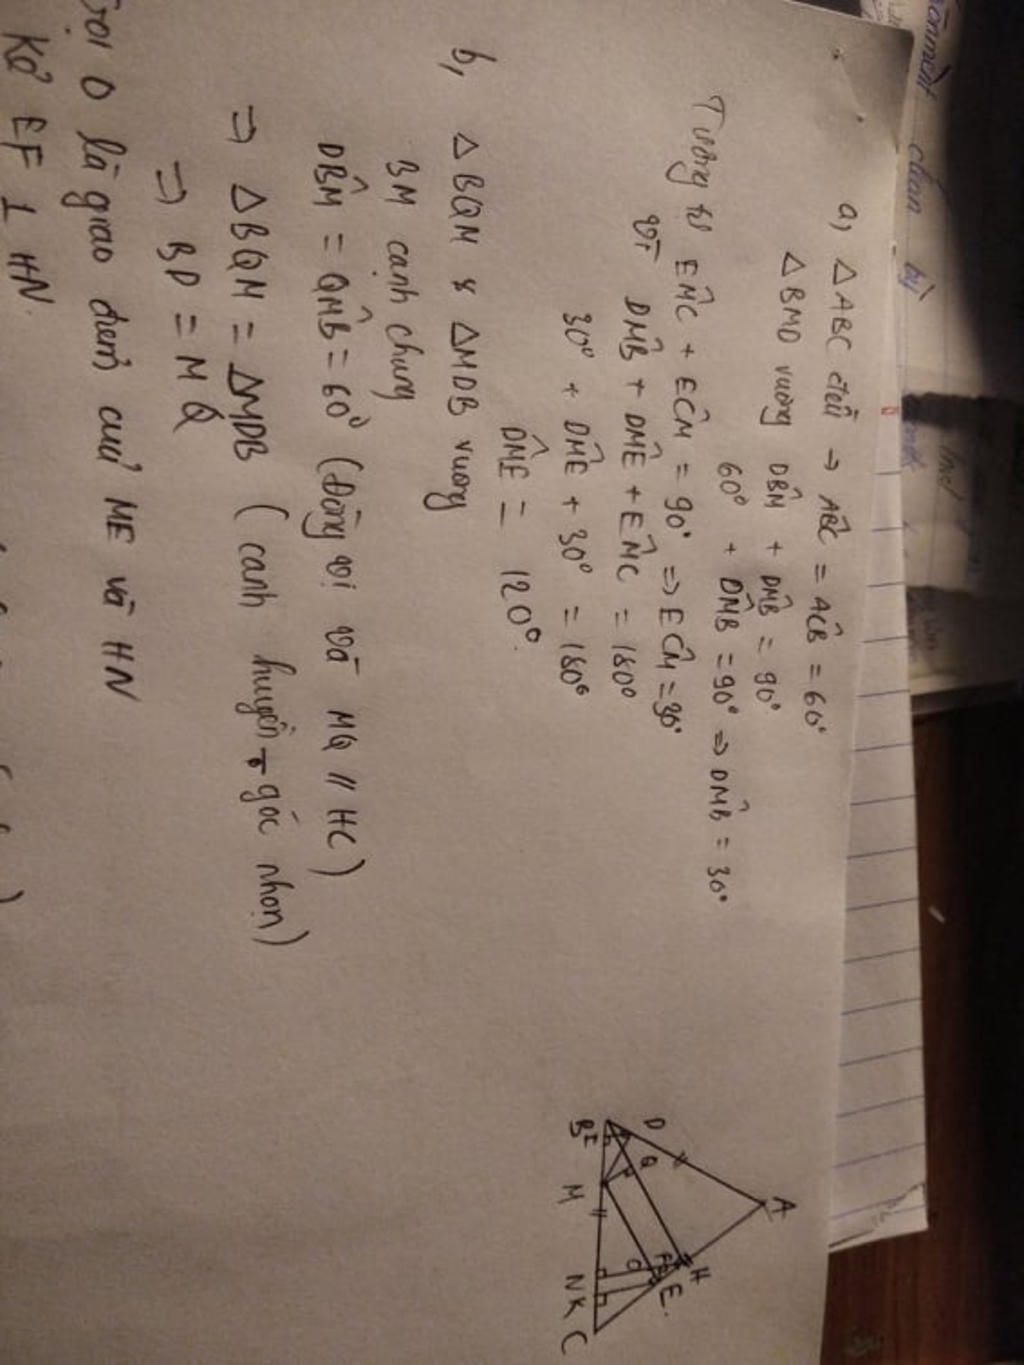 a, △ABC đều → AB̂C = AĈB = 60°
△BMD vuông DB̂M + DM̂B = 90°
60° + DM̂B = 90° ⇒ DM̂B = 30°
Tương tự EM̂C + EĈM = 90° ⇒ EĈM = 30°
DM̂B + DM̂E + EM̂C = 180°
30° + DM̂E + 30° = 180°
DM̂E = 120°.
b, △BQM & △MDB vuông
BM cạnh chung
DB̂M = QM̂B = 60° (Đồng vị và MQ // HC)
⇒ △BQM = △MDB (cạnh huyền + góc nhọn)
⇒ BD = MQ
Gọi O là giao điểm của ME và HN
Kẻ EF ⊥ HN.
A
D
Q
H
E.
B I
M
O
F
N K C